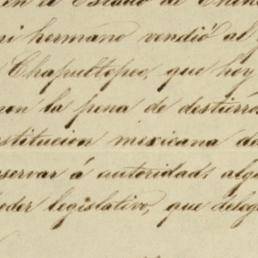 en el Estado de
mi hermano vendió al
Chapultepec, que hoy
con la pena de destierro
nstitucion mexicana de
servar á autoridad alg
oder legislativo, que